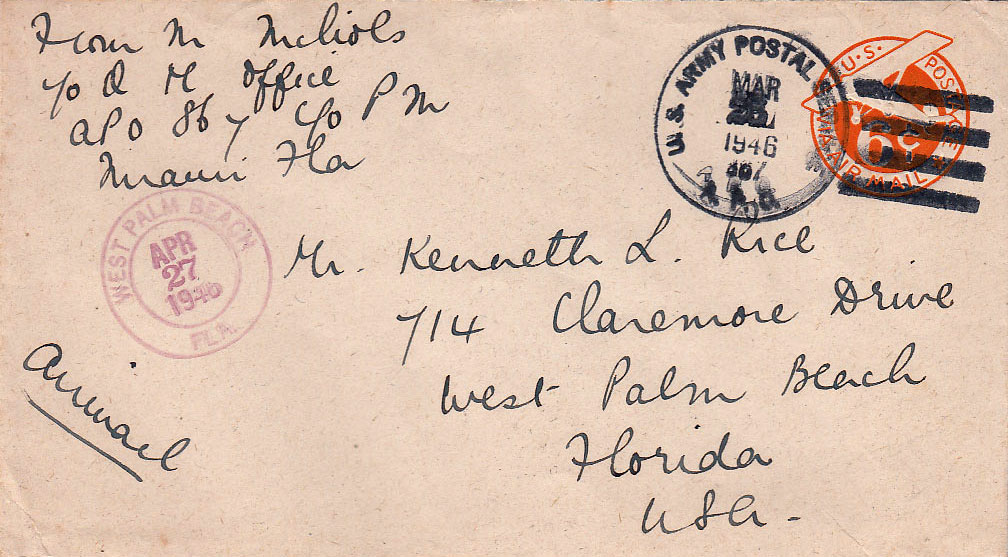 From M Nichols
c/o Q M Office
APO 867 c/o P M
Miami Fla
U.S. ARMY POSTAL SERVICE
MAR
1946
867
A.P.O.
U.S. POSTAGE
6¢
VIA·AIR·MAIL
WEST PALM BEACH
APR
27
1946
FLA.
Mr. Kenneth L. Rice
714 Claremore Drive
West Palm Beach
Florida
USA-
Airmail